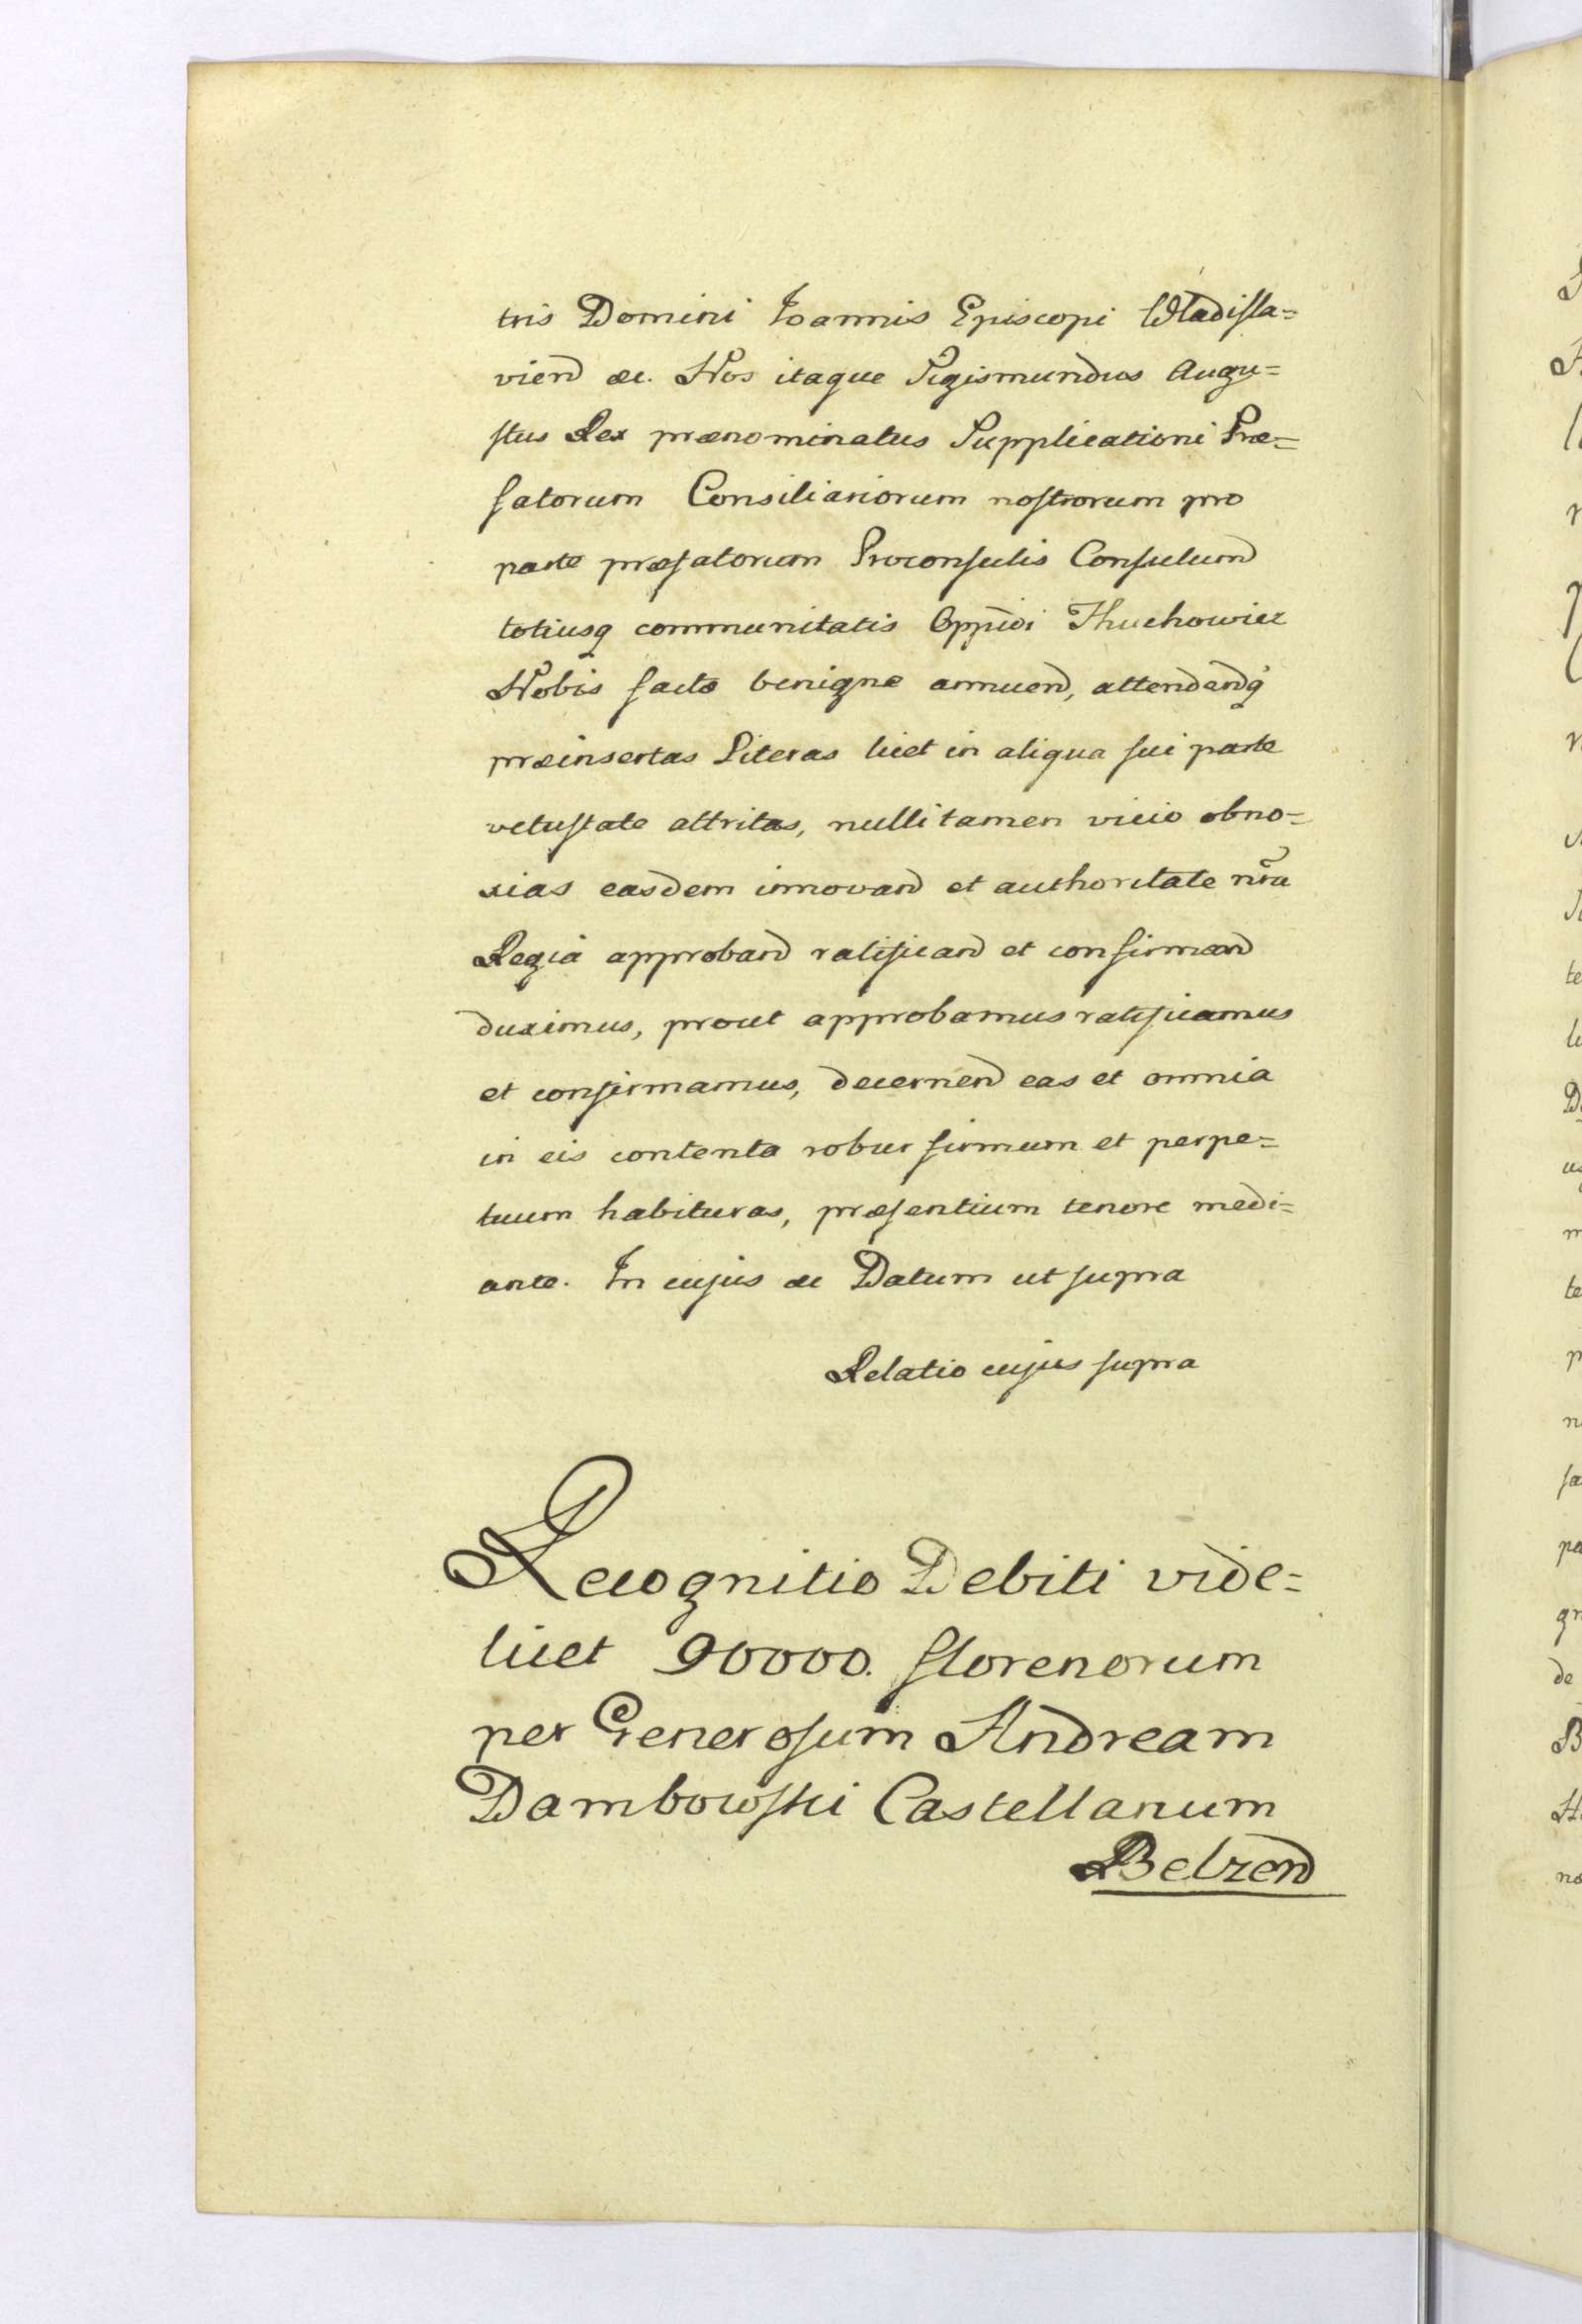 tris Domini Joannis Episcopi Wladisla=
viend &c. Nos itaque Sigismundus Augu=
stus Rex prænominatus Supplicationi Præ=
fatorum Consiliariorum nostrorum pro
parte præfatorum Proconsulis Consulund
totiusq communitatis Oppidi Thuchowicz
Nobis facto benigne annuend, attendendq
præinsertas Literas licet in aliqua sui parte
vetustate attritas, nulli tamen vicio obno=
xias easdem innovand et authoritate nra
Regiâ approband ratificand et confirmand
duximus, prout approbamus ratificamus
et confirmamus, decernend eas et omnia
in eis contenta robur firmum et perpe=
tuum habituras, præsentium tenore medi=
ante. In cujus &c Datum ut supra
Relatio cujus supra
Recognitio Debiti vide=
licet 90000. florenorum
per Generosum Andream
Dambowski Castellanum
Belzend